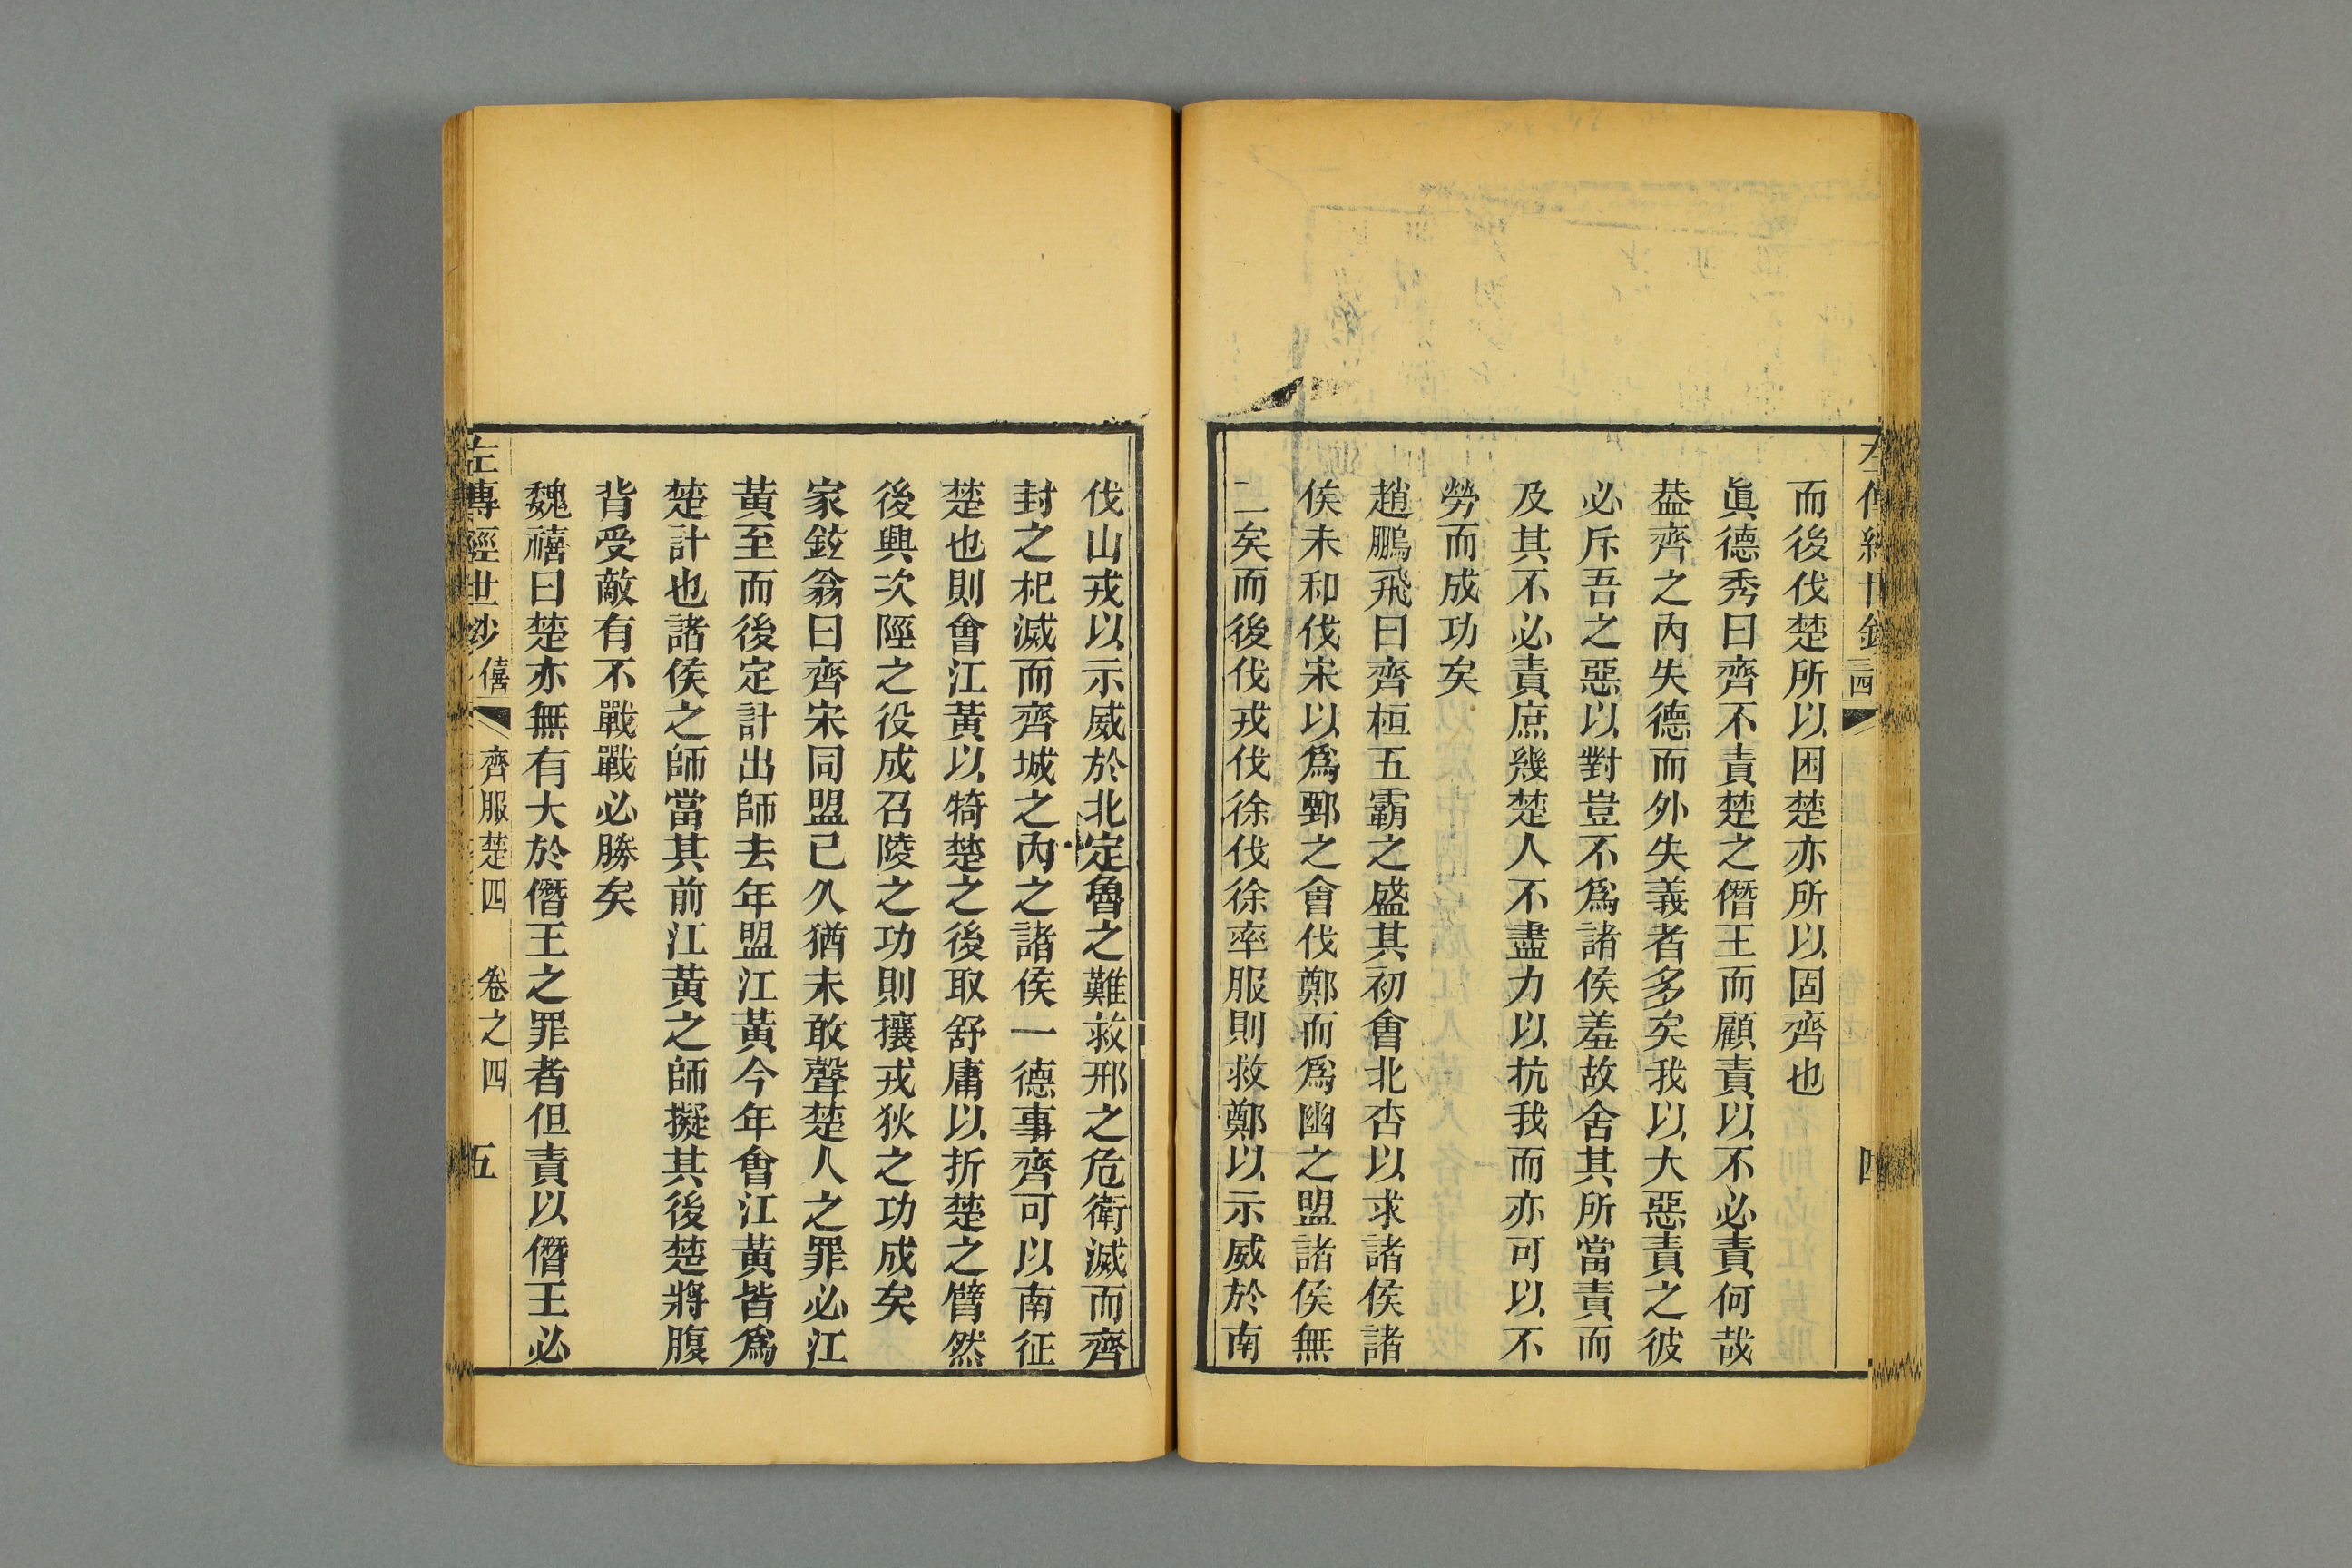 而後伐楚所以困楚亦所以固齊也
眞德秀曰齊不責楚之僭王而顧責以不必責何哉
葢齊之內失德而外失義者多矣我以大惡責之彼
必斥吾之惡以對豈不爲諸侯羞故舍其所當責而
及其不必責庶幾楚人不盡力以抗我而亦可以不
勞而成功矣
趙鵬飛曰齊桓五霸之盛其初會北杏以求諸侯諸
侯未和伐宋以爲鄄之會伐鄭而爲幽之盟諸侯無
二矣而後伐戎伐徐伐徐率服則救鄭以示威於南
伐山戎以示威於北定魯之難救邢之危衛滅而齊
封之杞滅而齊城之內之諸侯一德事齊可以南征
楚也則會江黃以犄楚之後取舒庸以折楚之臂然
後興次陘之役成召陵之功則攘戎狄之功成矣
家鉉翁曰齊宋同盟已久猶未敢聲楚人之罪必江
黃至而後定計出師去年盟江黃今年會江黃皆爲
楚計也諸侯之師當其前江黃之師擬其後楚將腹
背受敵有不戰戰必勝矣
魏禧曰楚亦無有大於僭王之罪者但責以僭王必
左傳經世鈔 僖 齊服楚四 卷之四 五